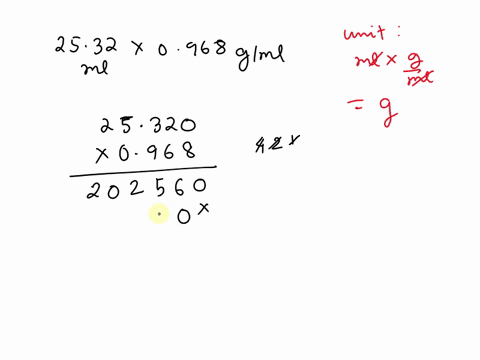 25.32 × 0.968 g/ml
ml
25.320
× 0.968
202560
0 ×
unit :
ml × g/ml
= g